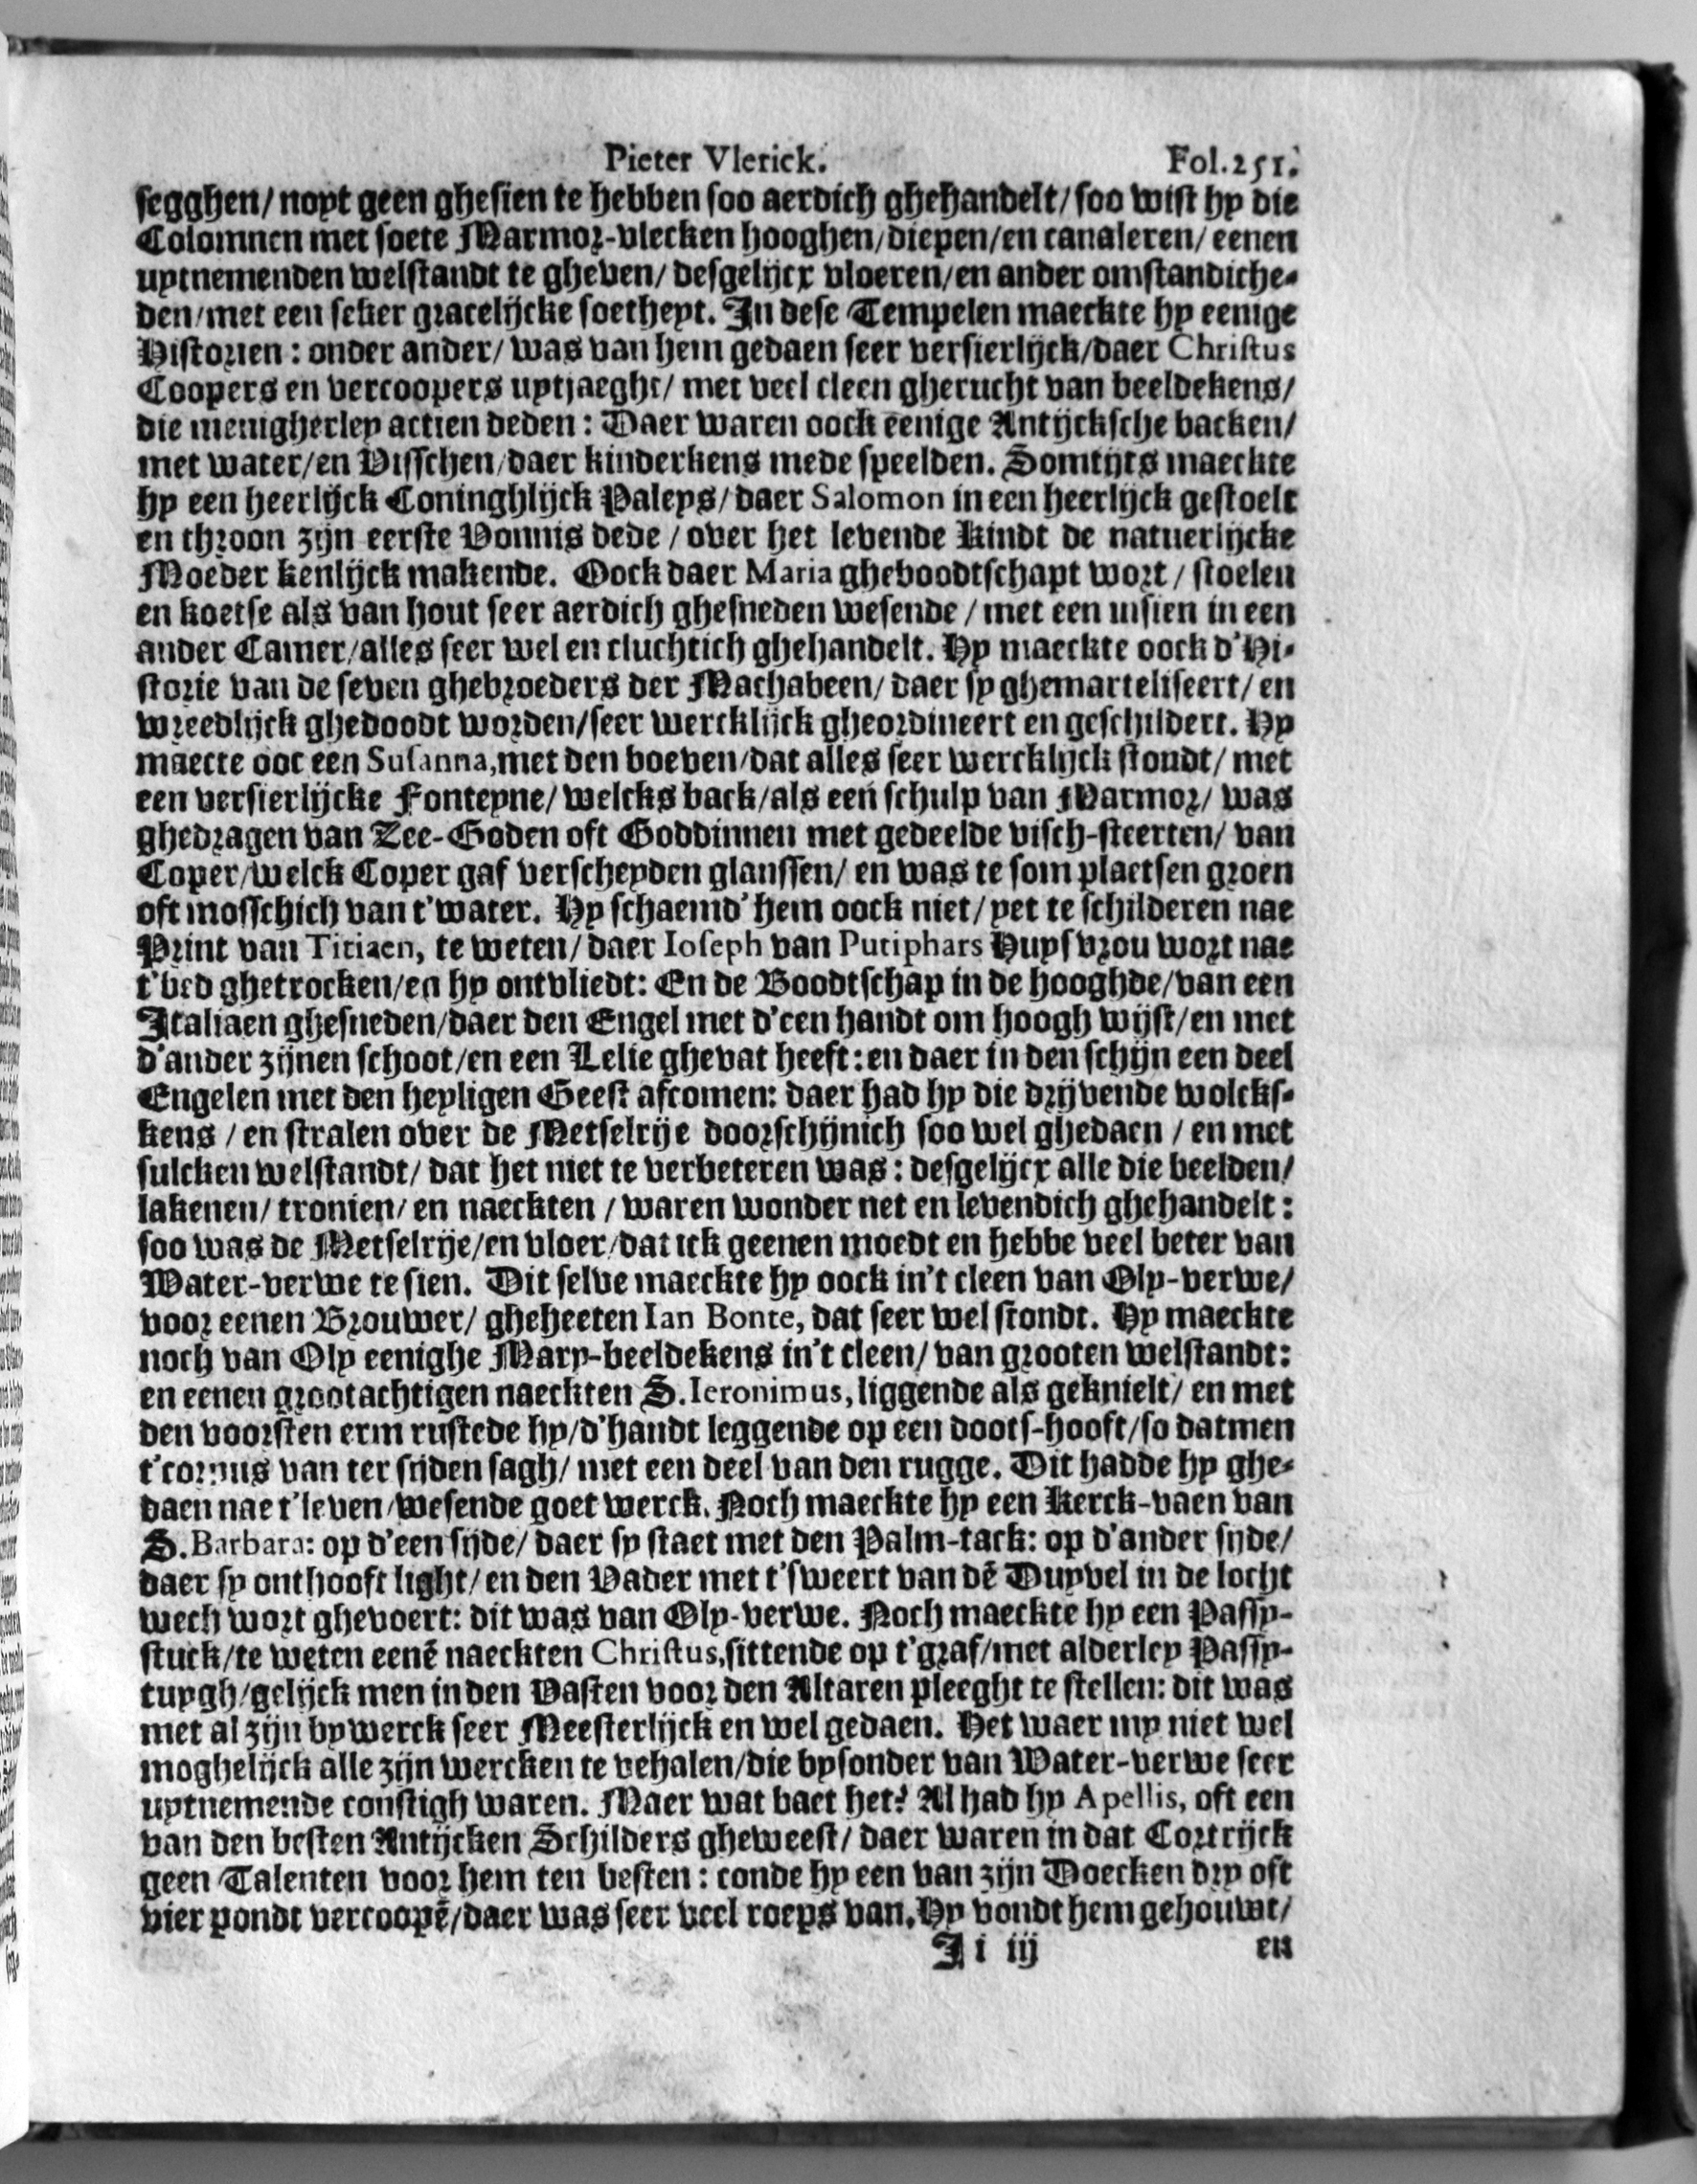 Pieter Vlerick. Fol.251.
segghen/noyt geen ghesien te hebben soo aerdich ghehandelt/soo wist hy die
Colomnen met soete Marmor-vlecken hooghen/diepen/en canaleren/eenen
uytnemenden welstandt te gheven/desgelijcx vloeren/en ander omstandiche-
den/met een seker gracelijcke soetheyt. In dese Tempelen maeckte hy eenige
Historien: onder ander/was van hem gedaen seer versierlijck/daer Christus
Coopers en vercoopers uytjaeght/met veel cleen gherucht van beeldekens/
die menigherley actien deden: Daer waren oock eenige Antijcksche backen/
met water/en Visschen/daer kinderkens mede speelden. Somtijts maeckte
hy een heerlijck Coninghlijck Paleys/daer Salomon in een heerlijck gestoelt
en throon zijn eerste Vonnis dede/over het levende kindt de natuerlijcke
Moeder kenlijck makende. Oock daer Maria gheboodtschapt wort/stoelen
en koetse als van hout seer aerdich ghesneden wesende/met een insien in een
ander Camer/alles seer wel en cluchtich ghehandelt. Hy maeckte oock d'Hi-
storie van de seven ghebroeders der Machabeen/daer sy ghemarteliseert/en
wreedlijck ghedoodt worden/seer wercklijck gheordineert en geschildert. Hy
maecte ooc een Susanna, met den boeven/dat alles seer wercklijck stondt/met
een versierlijcke Fonteyne/welcks back/als een schulp van Marmor/was
ghedragen van Zee-Goden oft Goddinnen met gedeelde visch-steerten/van
Coper/welck Coper gaf verscheyden glanssen/en was te som plaetsen groen
oft mosschich van t'water. Hy schaemd'hem oock niet/yet te schilderen nae
Print van Titiaen, te weten/daer Ioseph van Putiphars Huysvrou wort nae
t'bed ghetrocken/en hy ontvliedt: En de Boodtschap in de hooghde/van een
Italiaen ghesneden/daer den Engel met d'een handt om hoogh wijst/en met
d'ander zijnen schoot/en een Lelie ghevat heeft: en daer in den schijn een deel
Engelen met den heyligen Geest afcomen: daer had hy die drijvende wolcks-
kens/en stralen over de Metselrije doorschijnich soo wel ghedaen/en met
sulcken welstandt/dat het niet te verbeteren was: desgelijcx alle die beelden/
lakenen/tronien/en naeckten/waren wonder net en levendich ghehandelt:
soo was de Metselrije/en vloer/dat ick geenen moedt en hebbe veel beter van
Water-verwe te sien. Dit selve maeckte hy oock in't cleen van Oly-verwe/
voor eenen Brouwer/gheheeten Ian Bonte, dat seer wel stondt. Hy maeckte
noch van Oly eenighe Mary-beeldekens in't cleen/van grooten welstandt:
en eenen grootachtigen naeckten S. Ieronimus, liggende als geknielt/en met
den voorsten erm rustede hy/d'handt leggende op een doots-hooft/so datmen
t'corpus van ter sijden sagh/met een deel van den rugge. Dit hadde hy ghe-
daen nae t'leven/wesende goet werck. Noch maeckte hy een Kerck-vaen van
S. Barbara: op d'een sijde/daer sy staet met den Palm-tack: op d'ander sijde/
daer sy onthooft light/en den Vader met t'sweert van dē Duyvel in de locht
wech wort ghevoert: dit was van Oly-verwe. Noch maeckte hy een Passy-
stuck/te weten eenē naeckten Christus, sittende op t'graf/met alderley Passy-
tuygh/gelijck men in den Vasten voor den Altaren pleeght te stellen: dit was
met al zijn bywerck seer Meesterlijck en wel gedaen. Het waer my niet wel
moghelijck alle zijn wercken te vehalen/die bysonder van Water-verwe seer
uytnemende constigh waren. Maer wat baet het? Al had hy Apellis, oft een
van den besten Antijcken Schilders gheweest/daer waren in dat Cortrijck
geen Talenten voor hem ten besten: conde hy een van zijn Doecken dry oft
vier pondt vercoopē/daer was seer veel roeps van. Hy vondt hem gehouwt/
Ii iij en